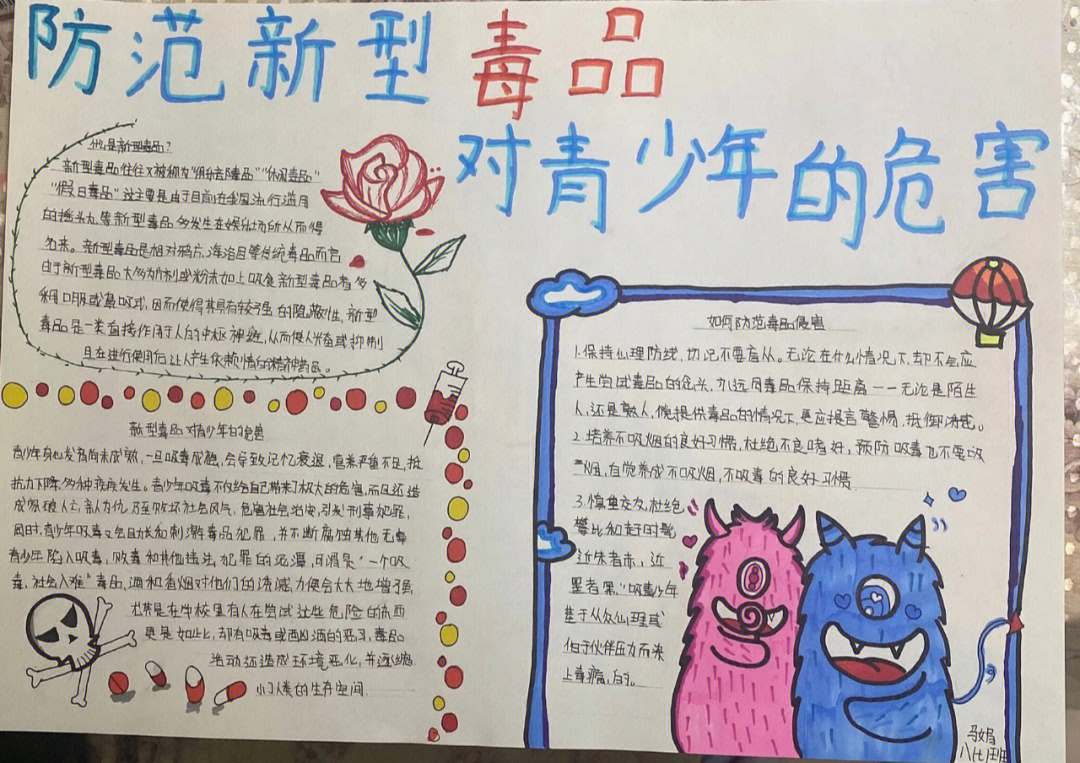 防范新型毒品
对青少年的危害
什么是新型毒品?
新型毒品往往又被称为"俱乐部毒品""休闲毒品"
"假日毒品"这主要是由于目前在我国流行滥用
的摇头丸等新型毒品多发生在娱乐场所从而得
名来。新型毒品是相对鸦片、海洛因等传统毒品而言
由于新型毒品大多为片剂或粉末加上吸食新型毒品者多
采用口服或鼻吸式,因而使得其具有较强的隐蔽性,新型
毒品是一类直接作用于人的中枢神经,从而使人兴奋或抑制
且在进行使用后让人产生依赖性的精神药品。
新型毒品对青少年的危害
青少年身心发育尚未成熟,一旦吸毒成瘾,会导致记忆衰退,营养严重不足,抵
抗力下降,多种疾病发生。青少年吸毒不仅给自己带来了极大的危害,而且还造
成家破人亡,亲人力仇,乃至败坏社会风气,危害社会治安,引发刑事犯罪,
同时,青少年吸毒又会助长和刺激毒品犯罪,并不断腐蚀其他无辜
青少年陷入吸毒,贩毒和其他违法,犯罪的泥潭,可谓是"一个吸
毒,社会入难"毒品,酒和香烟对他们的诱惑力便会大大地增强,
尤其是在学校里有人在尝试这些危险的东西
更是如此,却有吸毒或酗酒的恶习,毒品
活动还造成环境恶化,并还缩
小了人类的生存空间.
如何防范毒品侵害
1.保持心理防线,切记不要盲从。无论在什么情况下,却不气应
产生尝试毒品的念头,永远同毒品保持距离——无论是陌生
人,还是熟人,催提供毒品的情况下,更应提高警惕,抵御诱惑。
2.培养不吸烟的良好习惯,杜绝不良嗜好,预防吸毒也不要吸
烟,自觉养成不吸烟,不吸毒的良好习惯
3.慎重交友,杜绝
攀比和赶时髦
近朱者赤,近
墨者黑,"吸毒少年
基于从众心理或
伯于伙伴压力而来
上毒瘾,的。
八(七)班